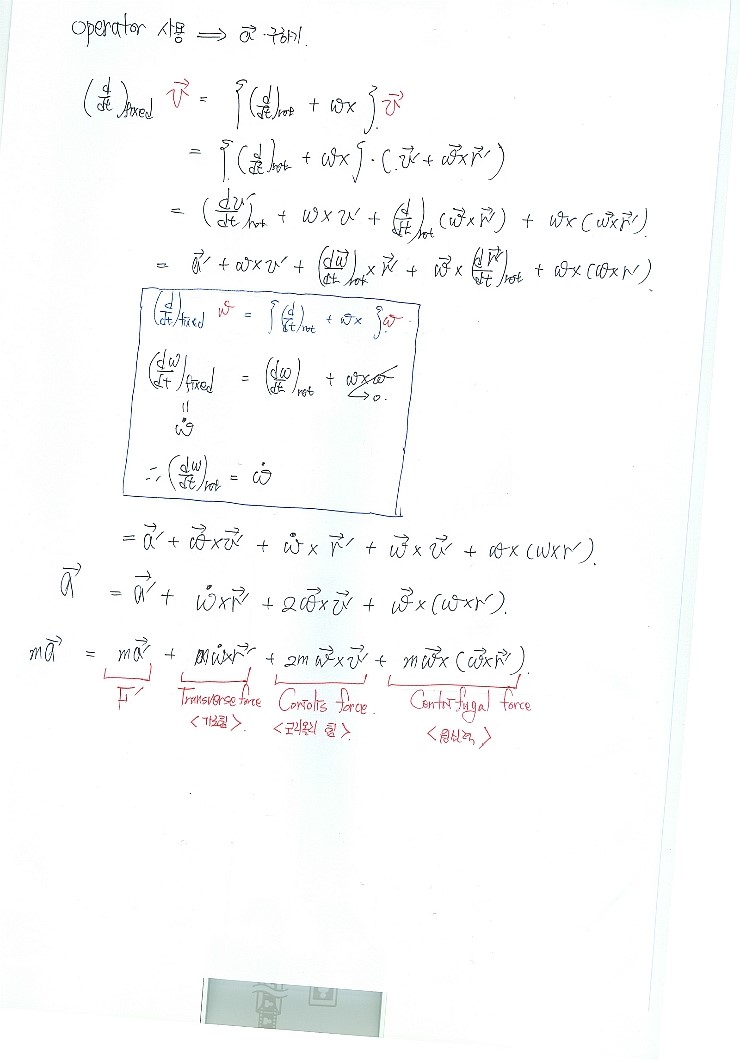 operator 사용 ⟹ a⃗ 구하기.
(d/dt)fixed v⃗ = {(d/dt)rot + ω×}v⃗
= {(d/dt)rot + ω×}·(v⃗′ + ω⃗×r⃗′)
= (dv′/dt)rot + ω×v′ + (d/dt)rot(ω⃗×r⃗′) + ω×(ω⃗×r⃗′)
= a⃗′ + ω×v′ + (dω⃗/dt)rot×r⃗′ + ω⃗×(dr⃗′/dt)rot + ω×(ω×r′)
(d/dt)fixed ω = {(d/dt)rot + ω×}ω
(dω/dt)fixed = (dω/dt)rot + ω×ω → 0.
=
ω̇
∴ (dω/dt)rot = ω̇
= a⃗′ + ω⃗×v⃗′ + ω̇×r⃗′ + ω⃗×v⃗′ + ω×(ω×r′).
a⃗ = a⃗′ + ω̇×r⃗′ + 2ω⃗×v⃗′ + ω⃗×(ω×r′).
ma⃗ = ma⃗′ + mω̇×r⃗′ + 2mω⃗×v⃗′ + mω⃗×(ω⃗×r⃗′).
F′ Transverse force Coriolis force. Centrifugal force
<코리올리 힘> <원심력>